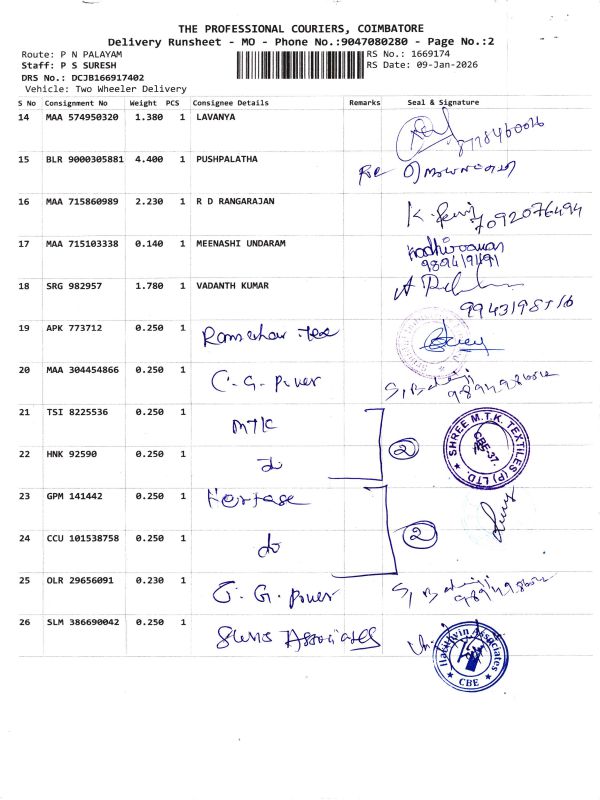 THE PROFESSIONAL COURIERS, COIMBATORE
Delivery Runsheet - MO - Phone No.:9047080280 - Page No.:2
Route: P N PALAYAM
RS No.: 1669174
Staff: P S SURESH
RS Date: 09-Jan-2026
DRS No.: DCJB166917402
Vehicle: Two Wheeler Delivery
S No Consignment No Weight PCS Consignee Details Remarks Seal & Signature
14 MAA 574950320 1.380 1 LAVANYA
15 BLR 9000305881 4.400 1 PUSHPALATHA
16 MAA 715860989 2.230 1 R D RANGARAJAN
7092076494
17 MAA 715103338 0.140 1 MEENASHI UNDARAM
Kadhiravan
18 SRG 982957 1.780 1 VADANTH KUMAR
19 APK 773712 0.250 1
20 MAA 304454866 0.250 1 C. G. Power
21 TSI 8225536 0.250 1 MTK
2
SHREE M.T.K. TEXTILES (P) LTD.
CBE-37.
22 HNK 92590 0.250 1 do
23 GPM 141442 0.250 1
24 CCU 101538758 0.250 1 do
2
25 OLR 29656091 0.230 1 C. G. Power
26 SLM 386690042 0.250 1 Associates
Associates
CBE